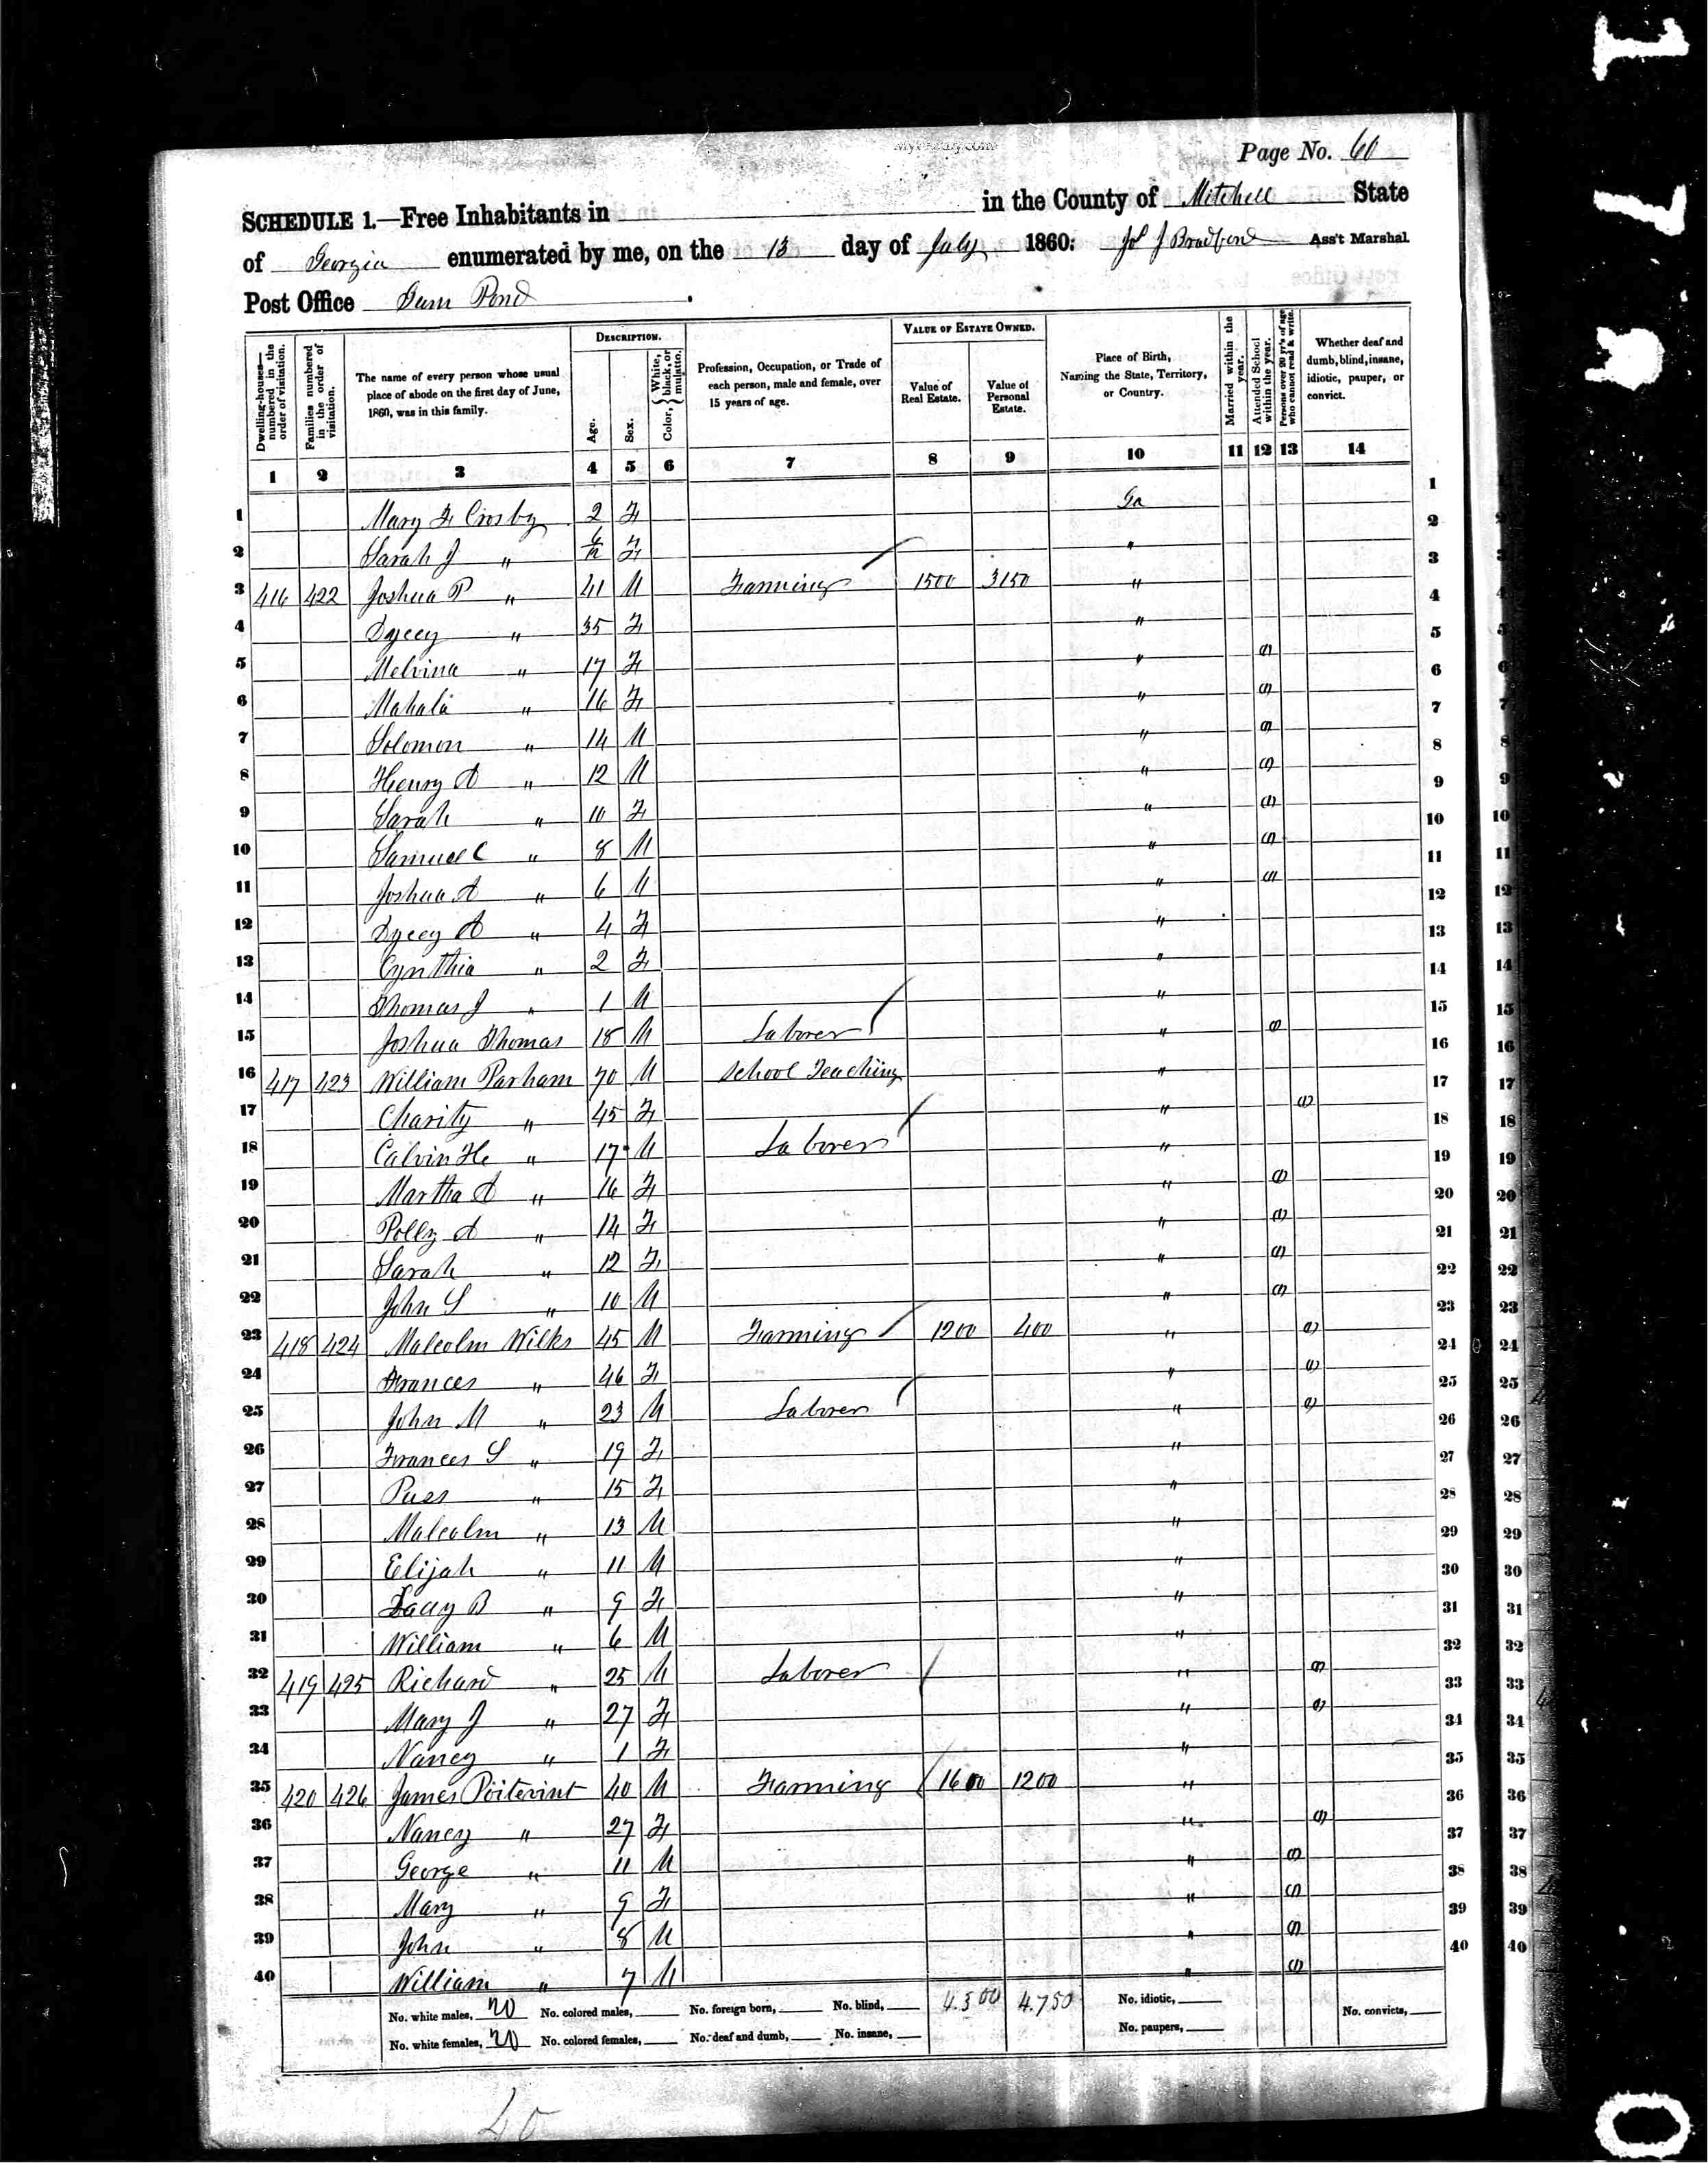 Page No. 60
SCHEDULE 1.—Free Inhabitants in in the County of Mitchell State
of Georgia enumerated by me, on the 13 day of July 1860. Ass't Marshal
Post Office Gum Pond
DESCRIPTION. VALUE OF ESTATE OWNED.
Dwelling-houses—numbered in the order of visitation. Families numbered in the order of visitation. The name of every person whose usual place of abode on the first day of June, 1860, was in this family. Age. Sex. Color, White, black, or mulatto. Profession, Occupation, or Trade of each person, male and female, over 15 years of age. Value of Real Estate. Value of Personal Estate. Place of Birth, Naming the State, Territory, or Country. Married within the year. Attended School within the year. Persons over 20 yr's of age who cannot read & write. Whether deaf and dumb, blind, insane, idiotic, pauper, or convict.
1 2 3 4 5 6 7 8 9 10 11 12 13 14
1 Mary F Crosby 2 F Ga 1
2 Sarah J " 6/12 F " 2
3 416 422 Joshua P " 41 M Farming 1500 3150 " 3
4 Dycey " 35 F " 4
5 Melvina " 17 F " (1) 5
6 Mahala " 16 F " (1) 6
7 Solomon " 14 M " (1) 7
8 Henry A " 12 M " (1) 8
9 Sarah " 10 F " (1) 9
10 Samuel C " 8 M " (1) 10
11 Joshua A " 6 M " (1) 11
12 Dycey A " 4 F " 12
13 Cynthia " 2 F " 13
14 Thomas J " 1 M " 14
15 Joshua Thomas 18 M Laborer " (1) 15
16 417 423 William Parham 70 M School Teaching " 16
17 Charity " 45 F " (1) 17
18 Calvin H " 17 M Laborer " 18
19 Martha A " 16 F " (1) 19
20 Polly A " 14 F " (1) 20
21 Sarah " 12 F " (1) 21
22 John S " 10 M " (1) 22
23 418 424 Malcolm Wilks 45 M Farming 1200 400 " (1) 23
24 Frances " 46 F " (1) 24
25 John M " 23 M Laborer " (1) 25
26 Frances S " 19 F " 26
27 Puss " 15 F " 27
28 Malcolm " 13 M " 28
29 Elijah " 11 M " 29
30 B " 9 F " 30
31 William " 6 M " 31
32 419 425 Richard " 25 M Laborer " (1) 32
33 Mary J " 27 F " (1) 33
34 Nancy " 1 F " 34
35 420 426 James Poitevint 40 M Farming 1600 1200 " 35
36 Nancy " 27 F " (1) 36
37 George " 11 M " (1) 37
38 Mary " 9 F " (1) 38
39 John " 8 M " (1) 39
40 William " 7 M " (1) 40
No. white males, 20 No. colored males, No. foreign born, No. blind, 4.300 4.750 No. idiotic, No. convicts,
No. white females, 20 No. colored females, No. deaf and dumb, No. insane, No. paupers,
40